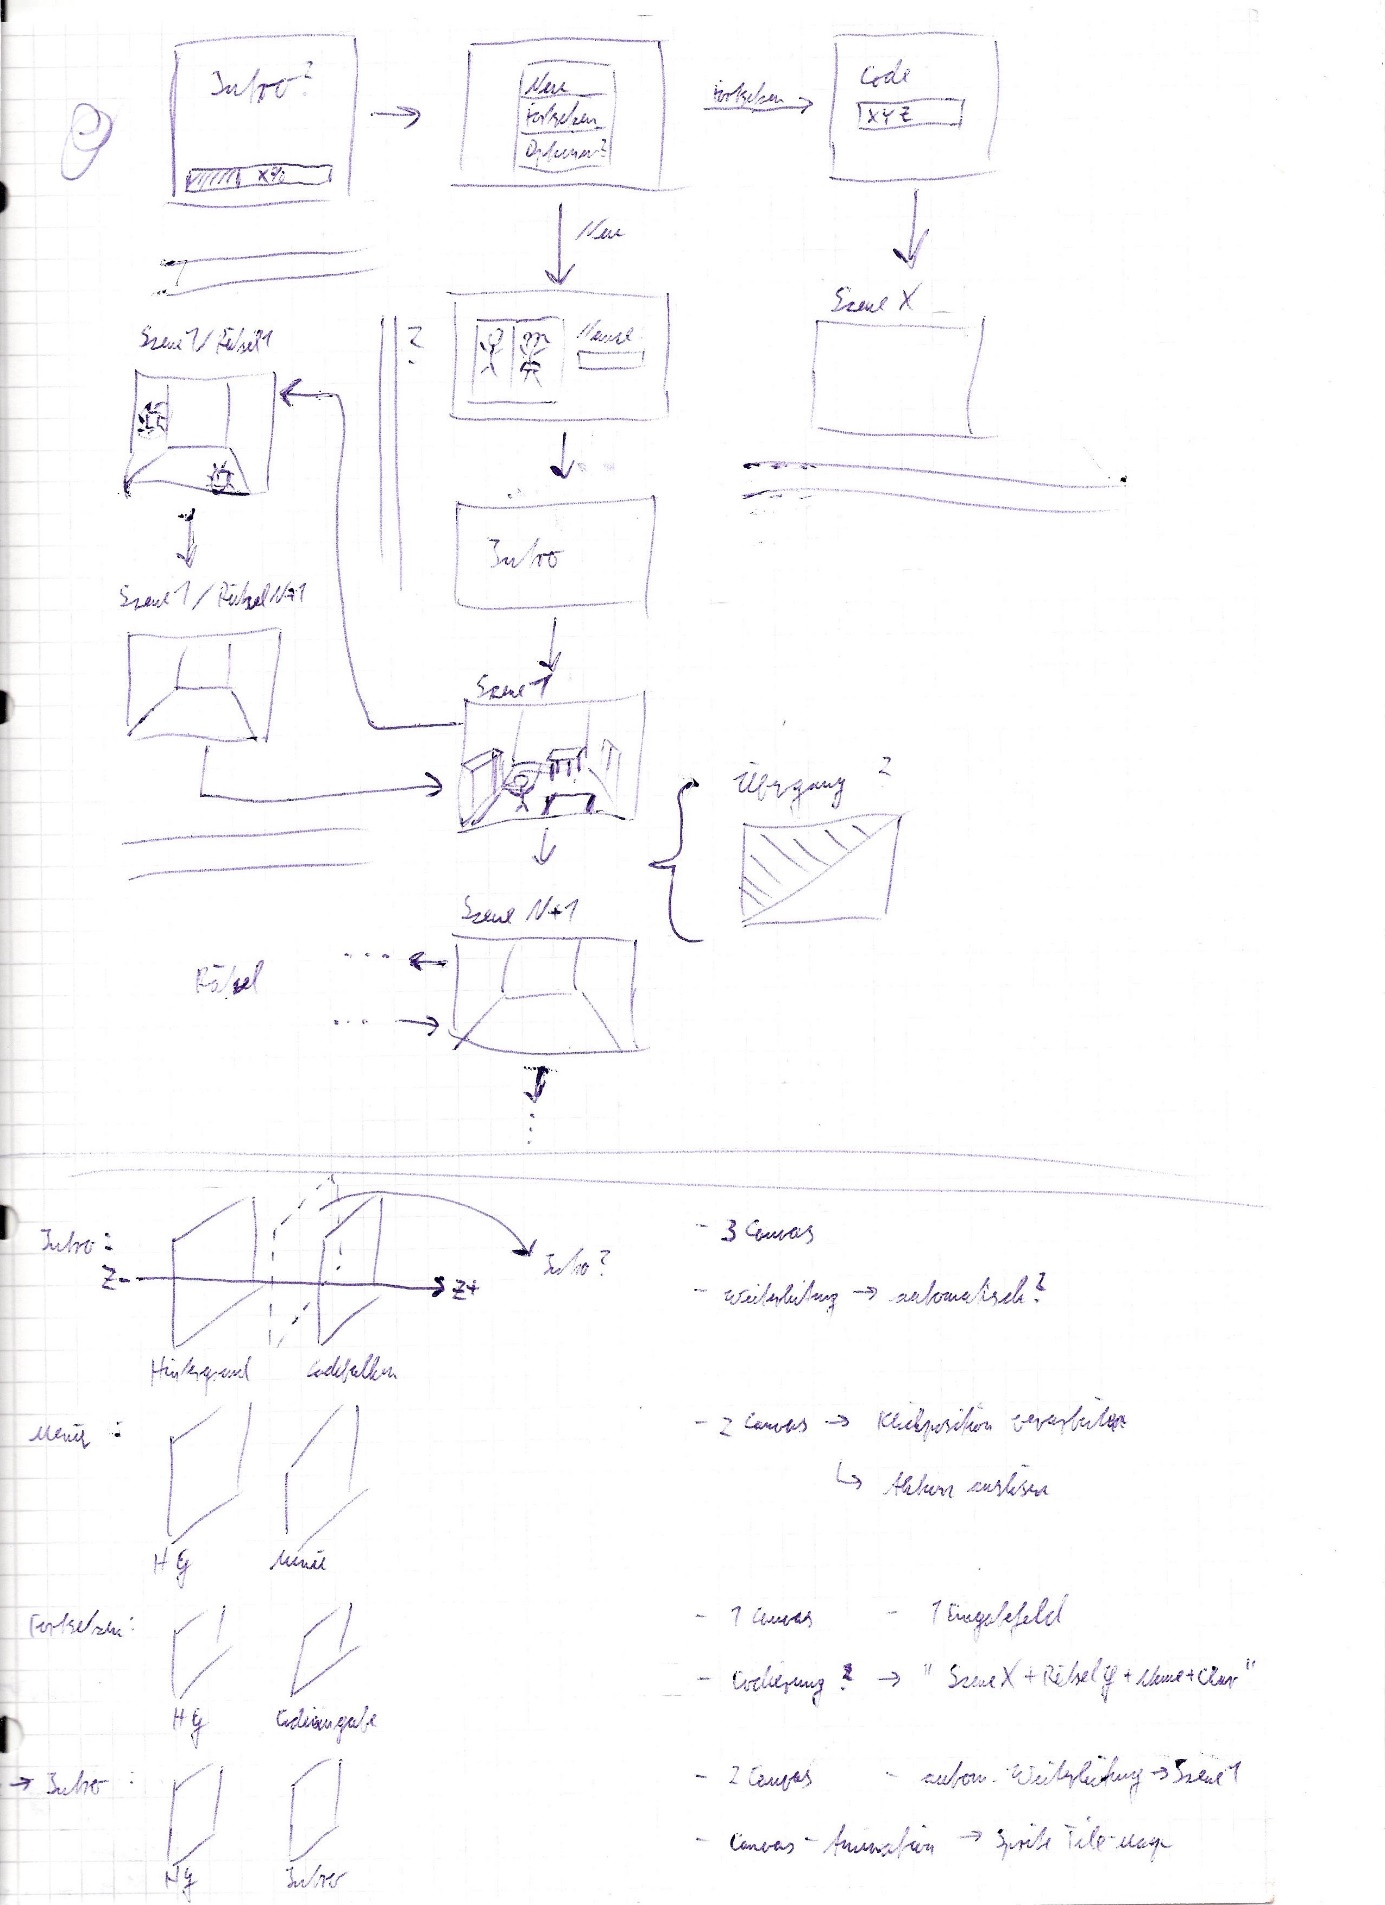 Intro?
X%
Neue
Fortsetzen
Optionen?
Fortsetzen
Code
XYZ
Neue
Szene X
?
Name
Szene 1 / Rätsel 1
Intro
Szene 1 / Rätsel N+1
Szene 1
Übergang ?
Szene N+1
Rätsel
Intro :
Z-
Z+
Intro?
Hintergrund
Ladebalken
- 3 Canvas
- Weiterleitung → automatisch?
Menü :
HG
Menü
- 2 Canvas → Klickposition verarbeiten
↳ Aktion auslösen
Fortsetzen :
HG
Codeeingabe
- 1 Canvas - 1 Eingabefeld
- Codierung ? → " Szene X + Rätsel Y + Name + Char "
→ Intro :
HG
Intro
- 2 Canvas - autom. Weiterleitung → Szene 1
- Canvas - Animation → Sprite Tile-Map